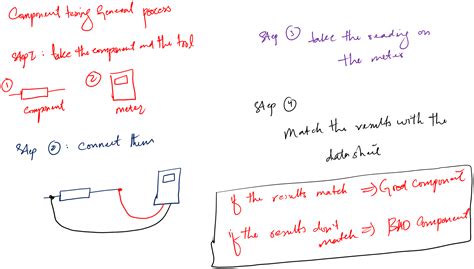 Component tesing General process
Step 1: take the component and the tool
① ②
Component meter
Step ②: Connect them
Step ③ take the reading on
the meter
Step ④
Match the results with the
datasheet
if the results match ⇒ Good Component
if the results don't
match ⇒ BAD Component